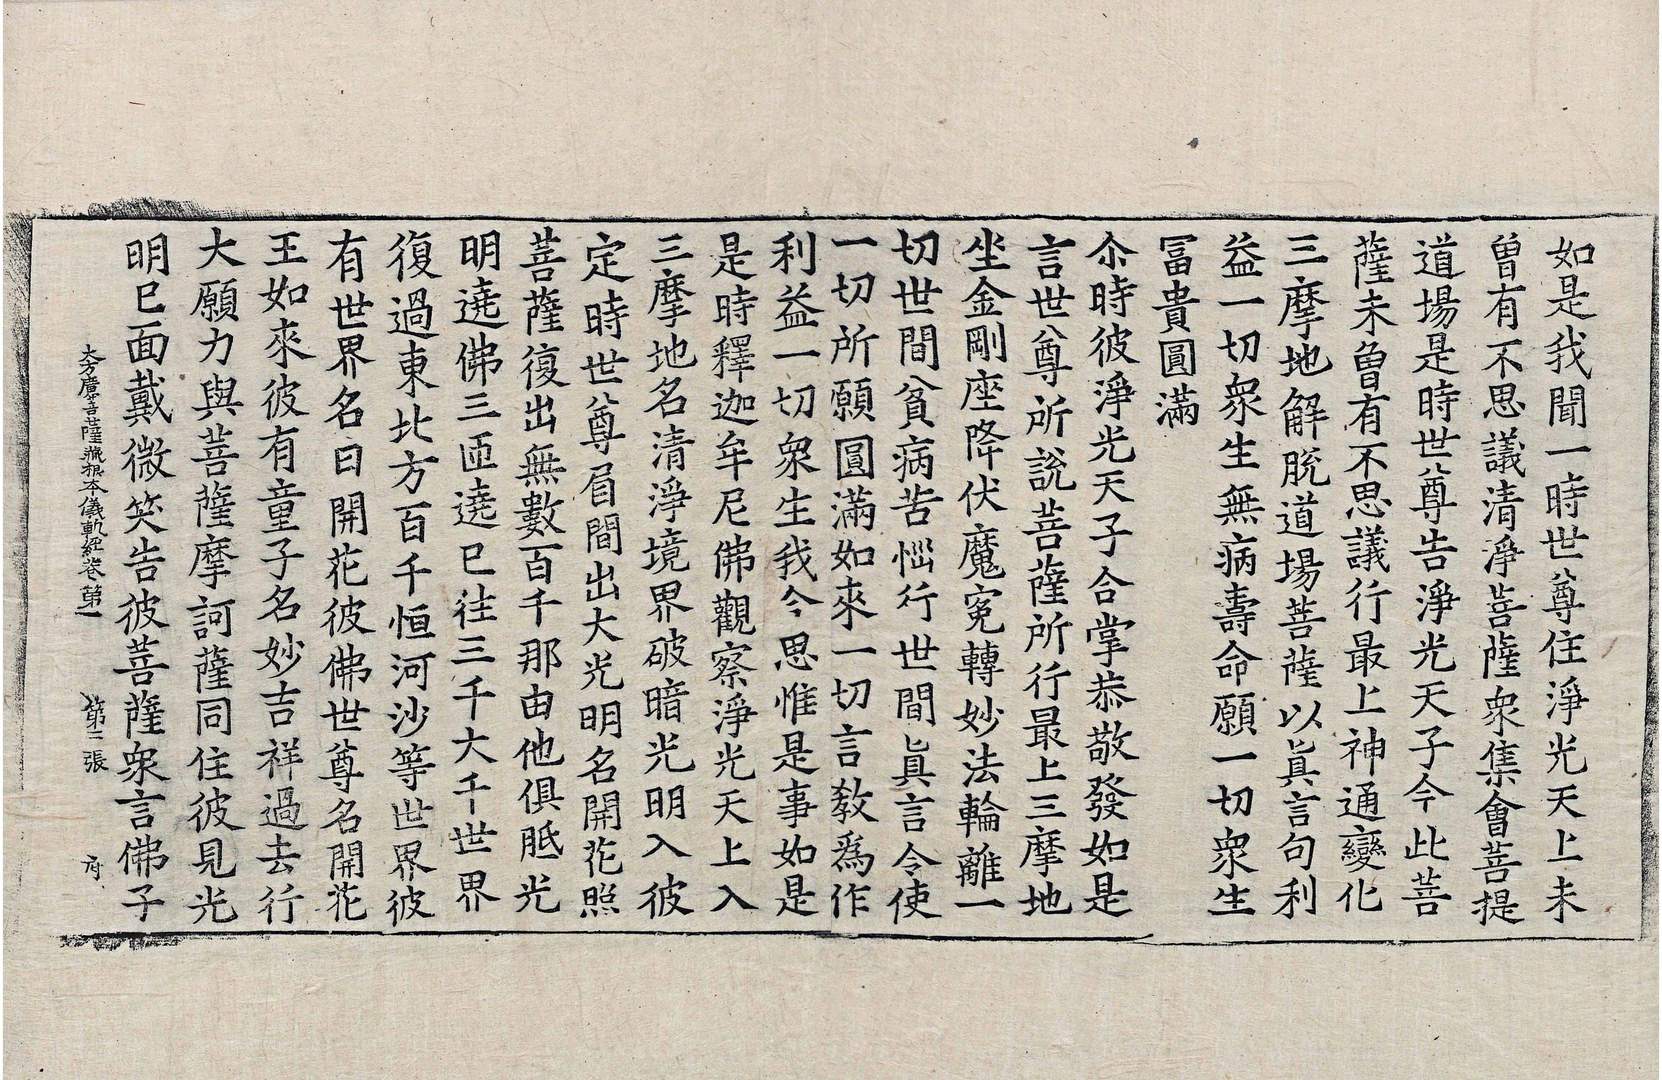 如是我聞一時世尊住淨光天上未
曾有不思議清淨菩薩衆集會菩提
道場是時世尊告淨光天子今此菩
薩未曾有不思議行最上神通變化
三摩地解脫道場菩薩以眞言句利
益一切衆生無病壽命願一切衆生
冨貴圓滿
尒時彼淨光天子合掌恭敬發如是
言世尊所說菩薩所行最上三摩地
坐金剛座降伏魔冤轉妙法輪離一
切世間貧病苦惱行世間眞言令使
一切所願圓滿如來一切言敎爲作
利益一切衆生我今思惟是事如是
是時釋迦牟尼佛觀察淨光天上入
三摩地名清淨境界破暗光明入彼
定時世尊眉間出大光明名開花照
菩薩復出無數百千那由他俱胝光
明遶佛三匝遶已往三千大千世界
復過東北方百千恒河沙等世界彼
有世界名曰開花彼佛世尊名開花
王如來彼有童子名妙吉祥過去行
大願力與菩薩摩訶薩同住彼見光
明已面戴微笑告彼菩薩衆言佛子
大方廣菩薩藏根本儀軌經卷第一 第二張 府